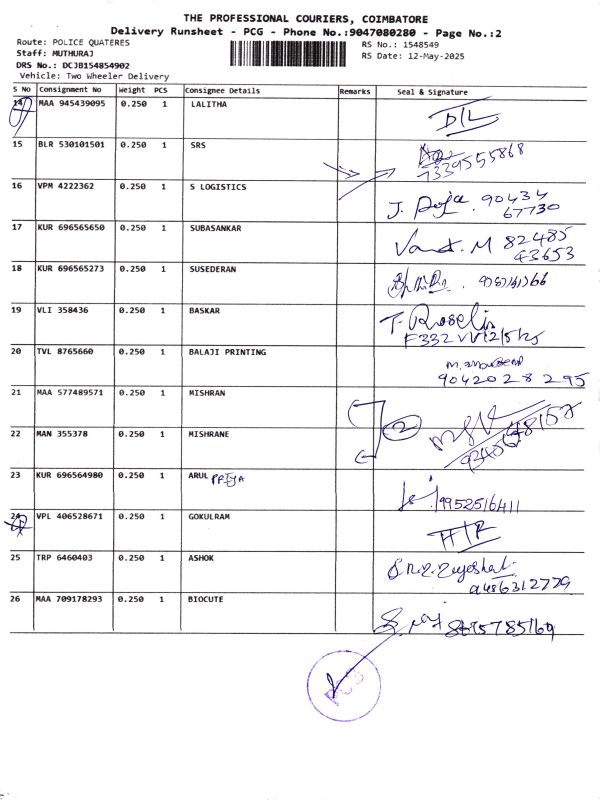 THE PROFESSIONAL COURIERS, COIMBATORE
Delivery Runsheet - PCG - Phone No.:9047080280 - Page No.:2
Route: POLICE QUATERES
RS No.: 1548549
Staff: MUTHURAJ
RS Date: 12-May-2025
DRS No.: DCJB154854902
Vehicle: Two Wheeler Delivery
S No Consignment No Weight PCS Consignee Details Remarks Seal & Signature
14 MAA 945439095 0.250 1 LALITHA D/L
15 BLR 530101501 0.250 1 SRS
7339555868
16 VPM 4222362 0.250 1 S LOGISTICS
J. Poja . 90434
67730
17 KUR 696565650 0.250 1 SUBASANKAR
M 82485
43653
18 KUR 696565273 0.250 1 SUSEDERAN
19 VLI 358436 0.250 1 BASKAR
T. Roselin
20 TVL 8765660 0.250 1 BALAJI PRINTING
9042028295
21 MAA 577489571 0.250 1 MISHRAN
2
22 MAN 355378 0.250 1 MISHRANE
23 KUR 696564980 0.250 1 ARUL PRIYA
9952516411
24 VPL 406528671 0.250 1 GOKULRAM
25 TRP 6460403 0.250 1 ASHOK
9486312779
26 MAA 709178293 0.250 1 BIOCUTE